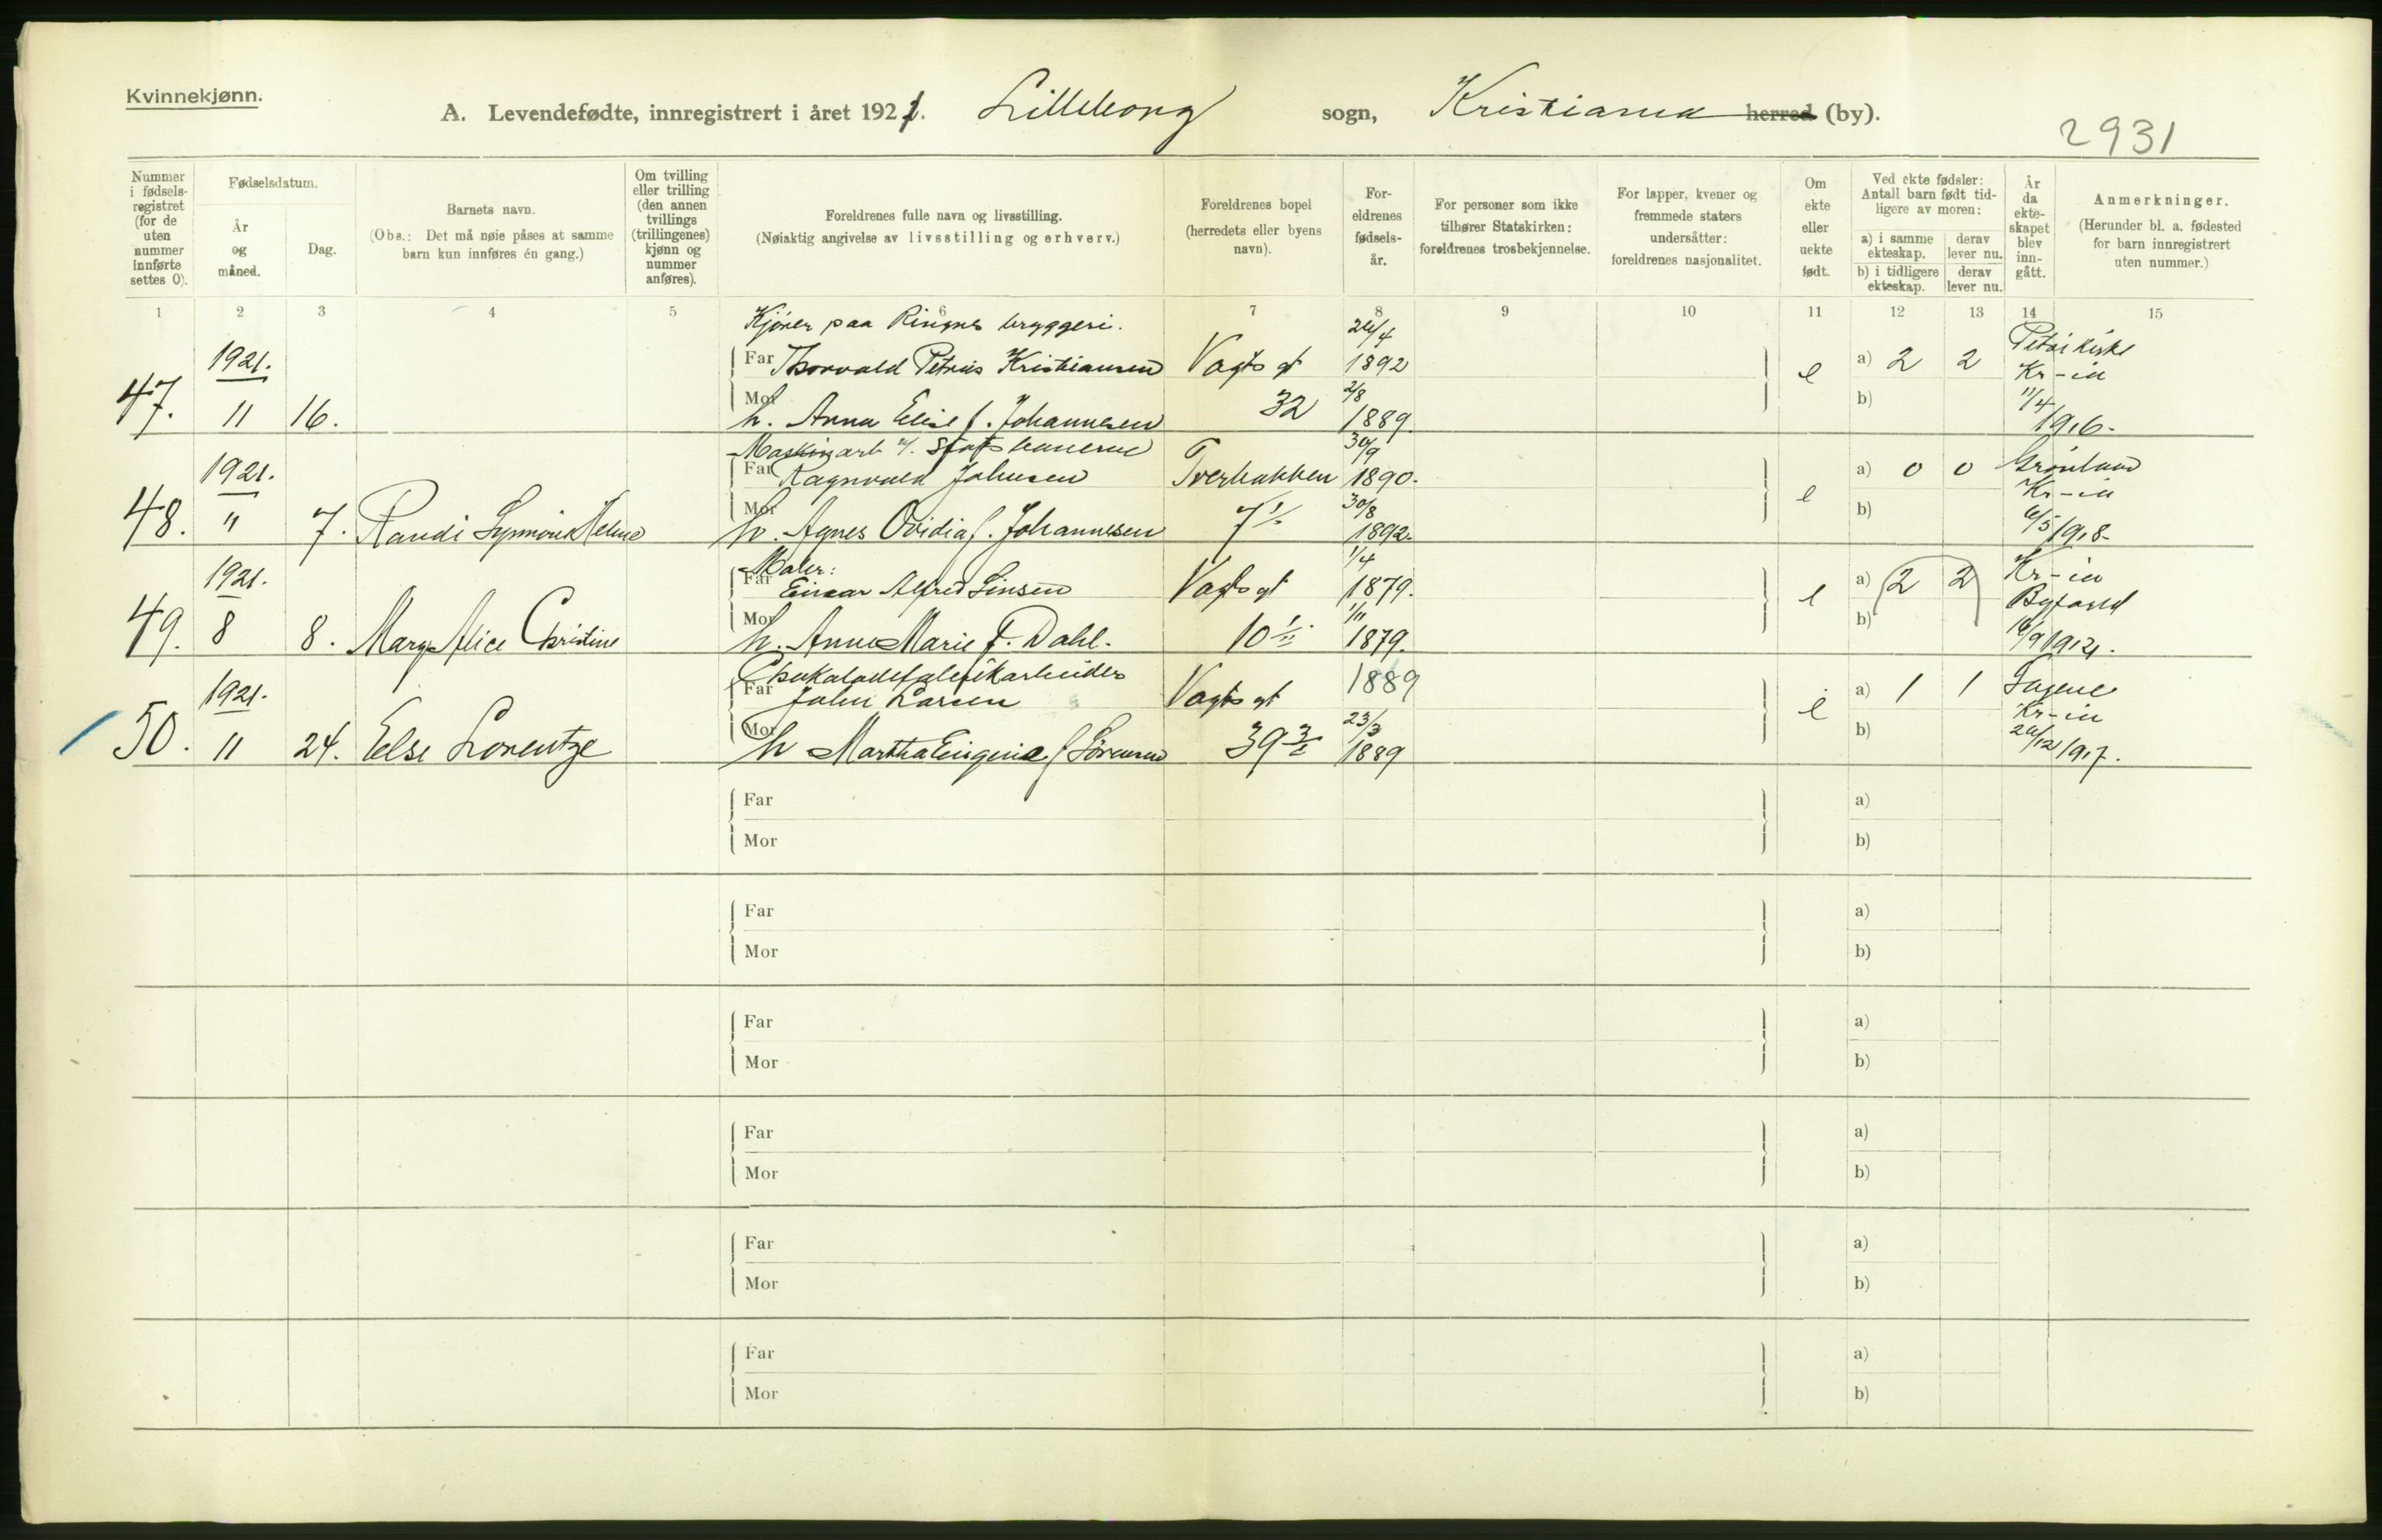 Kvinnekjønn.
A. Levendefødte, innregistrert i året 1921. Lilleborg sogn, Kristiania herred (by).
2931
Nummer i fødsels-registret (for de uten nummer innførte settes 0).
Fødselsdatum.
År og måned.
Dag.
Barnets navn.
(Obs.: Det må nøie påses at samme barn kun innføres én gang.)
Om tvilling eller trilling (den annen tvillings (trillingenes) kjønn og nummer anføres).
Foreldrenes fulle navn og livsstilling.
(Nøiaktig angivelse av livsstilling og erhverv.)
Foreldrenes bopel (herredets eller byens navn).
For-eldrenes fødsels-år.
For personer som ikke tilhører Statskirken: foreldrenes trosbekjennelse.
For lapper, kvener og fremmede staters undersåtter: foreldrenes nasjonalitet.
Om ekte eller uekte født.
Ved ekte fødsler: Antall barn født tid-ligere av moren:
a) i samme ekteskap. derav lever nu.
b) i tidligere ekteskap. derav lever nu.
År da ekte-skapet blev inn-gått.
Anmerkninger.
(Herunder bl. a. fødested for barn innregistrert uten nummer.)
1 2 3 4 5 6 7 8 9 10 11 12 13 14 15
Kjører paa Ringnes bryggeri. 24/4
1921. Far Thorvald Petrus Kristiansen Vogts gt 1892 e a) 2 2 Petri kirke Kr-ia
47. 11 16. Mor h. Anna Elise f. Johannesen 32 2/8 1889 b) 11/4 1916.
Maskinarb v. Statsbanerne 30/9
1921. Far Ragnvald Johnsen Tverbakken 1890. e a) 0 0 Grønland Kr-ia
48. " 7. Randi Synnøve Helene Mor h. Agnes Ovidia f. Johannesen 7 30/8 1892. b) 6/5 1918.
Maler: 1/4
1921. Far Einar Alfred Jensen Vogts gt 1879. e a) 2 2 Kr-ia Byfoged
49. 8 8. Mary Alice Christine Mor h. Anne Marie f. Dahl. 10 1/11 1879. b) 1912.
Chokoladefabrikarbeider
1921. Far John Larsen Vogts gt 1889 e a) 1 1 Sagene Kr-ia
50. 11 24. Else Lorentze Mor h Martha Eugenie f Sørensen 39 23/3 1889 b) 1917.
Far a)
Mor b)
Far a)
Mor b)
Far a)
Mor b)
Far a)
Mor b)
Far a)
Mor b)
Far a)
Mor b)